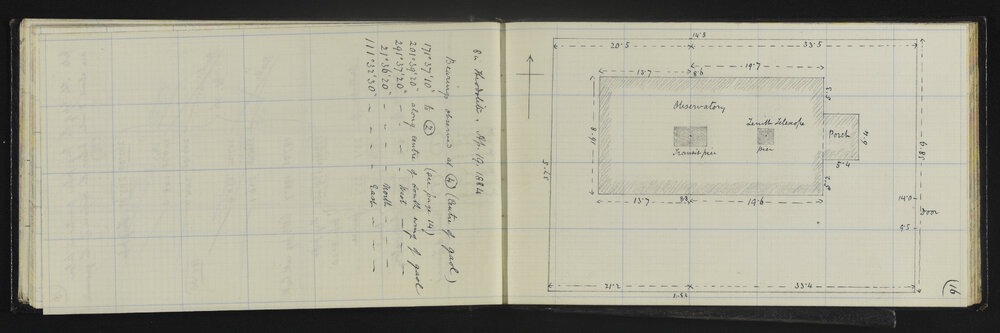 8 in Theodolite. Ap. 19. 1884
Bearings observed at (4) (Centre of gaol)
171° 37' 10" to (2) (see page 14)
201° 39' 20" along centre of South wing of gaol
291° 37' 20" — " — West — " —
21° 36' 20" — " — North — " —
111° 32' 50" — " — East — " —
16
14.3
20.5
33.5
13.7
8.6
19.7
Observatory
Zenith Telescope
pier
Transit pier
Porch
5.3
6.4
5.4
5.2
38.9
16.8
13.7
19.6
14.0
Door
9.5
21.2
33.4